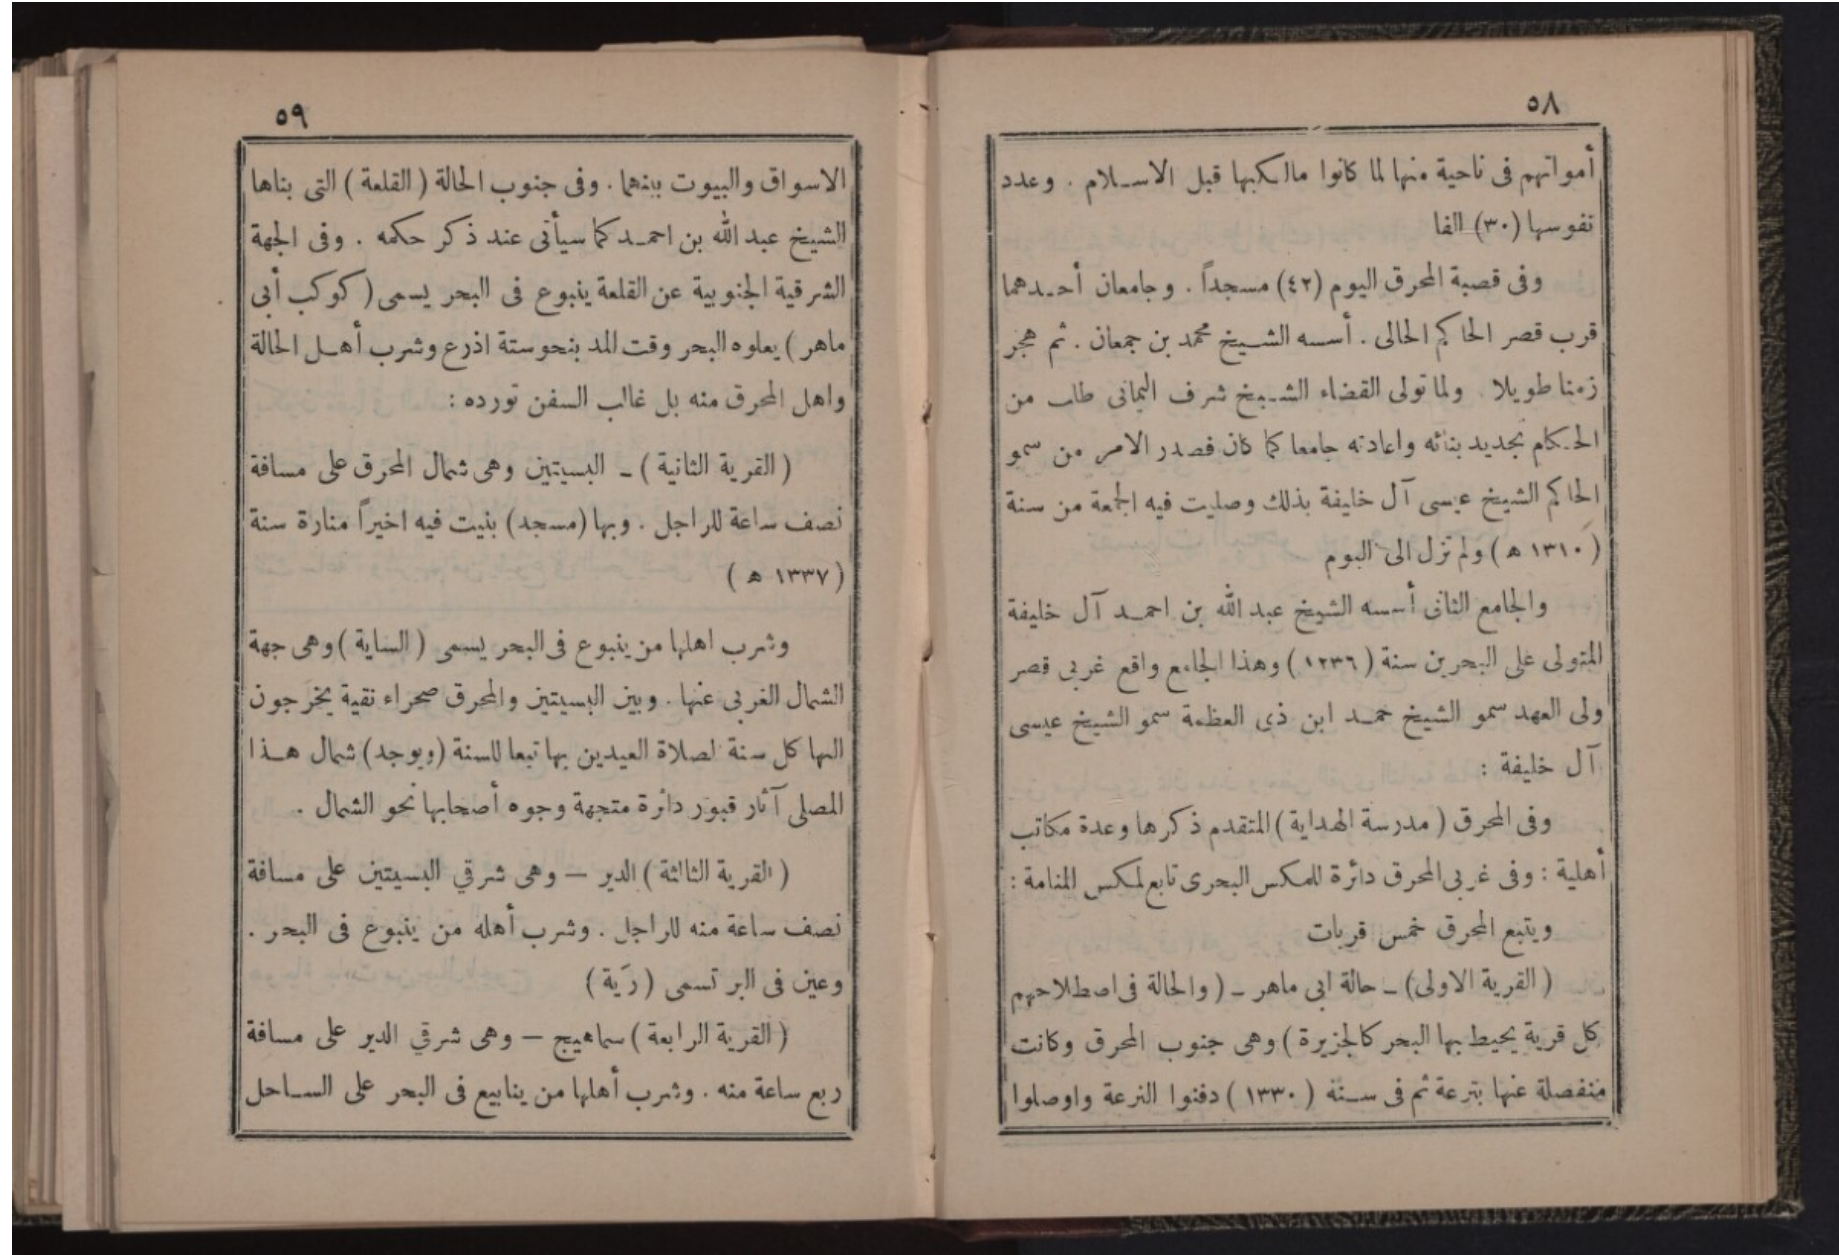 ٥٨
أمواتهم فى ناحية منها لما كانوا مالكيها قبل الاسلام . وعدد
نفوسها (٣٠) الفا
وفى قصبة المحرق اليوم (٤٢) مسجداً . وجامعان أحدهما
قرب قصر الحاكم الحالى . أسسه الشيخ محمد بن جمعان . ثم هجر
زمنا طويلا . ولما تولى القضاء الشيخ شرف اليمانى طلب من
الحكام تجديد بنائه واعادته جامعا كما كان فصدر الامر من سمو
الحاكم الشيخ عيسى آل خليفة بذلك وصليت فيه الجمعة من سنة
(١٣١٠ ھ) ولم تزل الى اليوم
والجامع الثانى أسسه الشيخ عبد الله بن احمد آل خليفة
المتولى على البحرين سنة (١٢٣٦) وهذا الجامع واقع غربى قصر
ولى العهد سمو الشيخ حمد ابن ذى العظمة سمو الشيخ عيسى
آل خليفة :
وفى المحرق (مدرسة الهداية) المتقدم ذكرها وعدة مكاتب
أهلية : وفى غربى المحرق دائرة للمكس البحرى تابع لمكس المنامة :
ويتبع المحرق خمس قريات
(القرية الاولى) ـ حالة ابى ماهر ـ (والحالة فى اصطلاحهم
كل قرية يحيط بها البحر كالجزيرة) وهى جنوب المحرق وكانت
منفصلة عنها بترعة ثم فى سنة (١٣٣٠) دفنوا الترعة واوصلوا
٥٩
الاسواق والبيوت بينهما . وفى جنوب الحالة (القلعة) التى بناها
الشيخ عبد الله بن احمد كما سيأتى عند ذكر حكمه . وفى الجهة
الشرقية الجنوبية عن القلعة ينبوع فى البحر يسمى (كوكب أبى
ماهر) يعلوه البحر وقت المد بنحو ستة اذرع وشرب أهل الحالة
واهل المحرق منه بل غالب السفن تورده :
(القرية الثانية) ـ البسيتين وهى شمال المحرق على مسافة
نصف ساعة للراجل . وبها (مسجد) بنيت فيه اخيراً منارة سنة
(١٣٣٧ ھ)
وشرب اهلها من ينبوع فى البحر يسمى (الساية) وهى جهة
الشمال الغربى عنها . وبين البسيتين والمحرق صحراء نقية يخرجون
اليها كل سنة لصلاة العيدين بها تبعا للسنة (ويوجد) شمال هذا
المصلى آثار قبور دائرة متجهة وجوه أصحابها نحو الشمال .
(القرية الثالثة) الدير — وهى شرقي البسيتين على مسافة
نصف ساعة منه للراجل . وشرب أهله من ينبوع فى البحر .
وعين فى البر تسمى (رَية)
(القرية الرابعة) سماهيج — وهى شرقي الدير على مسافة
ربع ساعة منه . وشرب أهلها من ينابيع فى البحر على الساحل